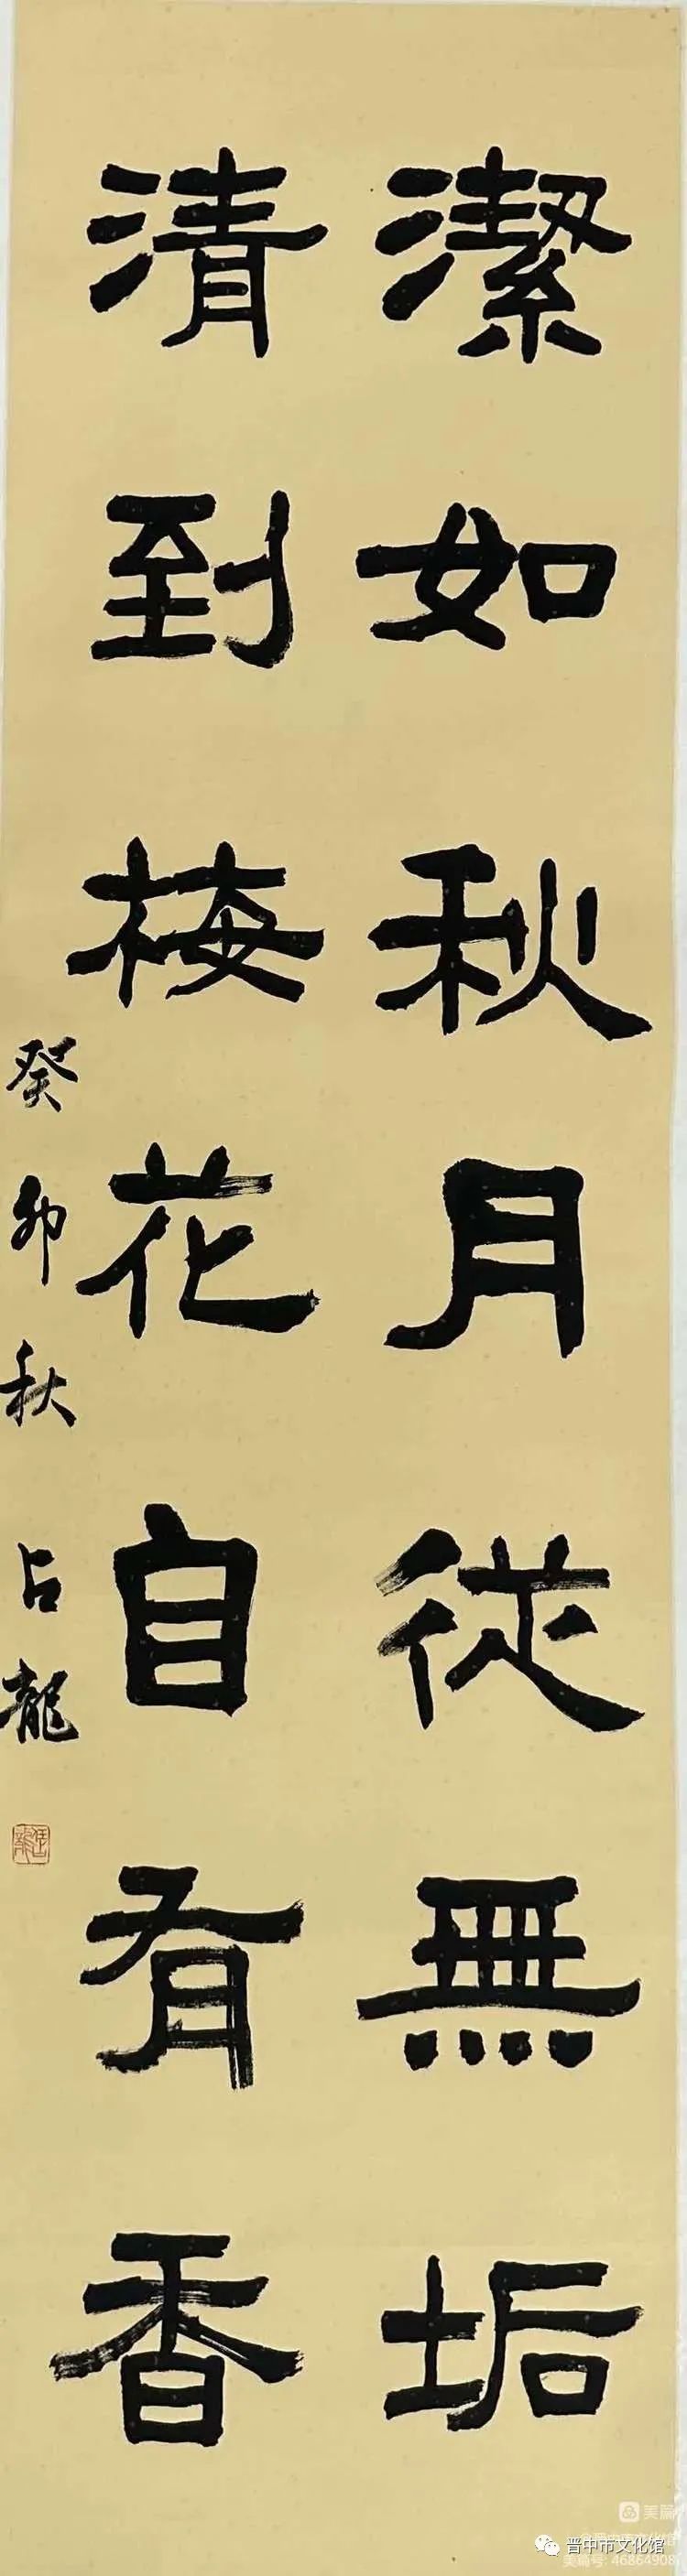 潔如秋月從無垢
清到梅花自有香
癸卯秋 占龍
美篇
晋中市文化馆
美篇号: 46864908